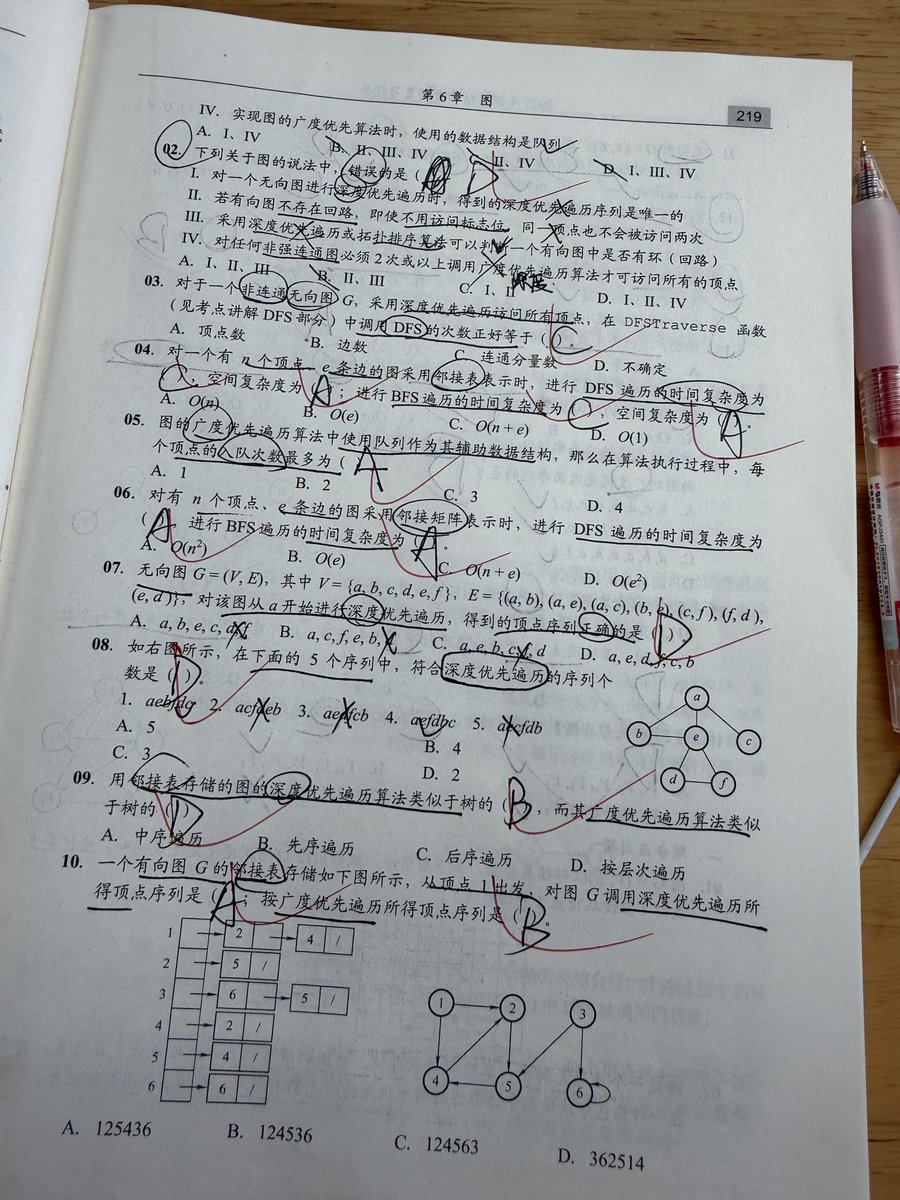 第6章 图
219
IV. 实现图的广度优先算法时，使用的数据结构是队列
A. I、IV B. II、III、IV C. II、IV D. I、III、IV
02. 下列关于图的说法中，错误的是（ D ）。
I. 对一个无向图进行深度优先遍历时，得到的深度优先遍历序列是唯一的
II. 若有向图不存在回路，即使不用访问标志位，同一顶点也不会被访问两次
III. 采用深度优先遍历或拓扑排序算法可以判断一个有向图中是否有环（回路）
IV. 对任何非强连通图必须2次或以上调用广度优先遍历算法才可访问所有的顶点
深度
A. I、II、III B. II、III C. I、II D. I、II、IV
03. 对于一个非连通无向图 G，采用深度优先遍历访问所有顶点，在 DFSTraverse 函数
（见考点讲解 DFS 部分）中调用 DFS 的次数正好等于（ C ）。
A. 顶点数 B. 边数 C. 连通分量数 D. 不确定
04. 对一个有 n 个顶点、e 条边的图采用邻接表表示时，进行 DFS 遍历的时间复杂度为
（ ），空间复杂度为（ A ）；进行 BFS 遍历的时间复杂度为（ ），空间复杂度为（ A ）。
A. O(n) B. O(e) C. O(n + e) D. O(1)
05. 图的广度优先遍历算法中使用队列作为其辅助数据结构，那么在算法执行过程中，每
个顶点的入队次数最多为（ A ）。
A. 1 B. 2 C. 3 D. 4
06. 对有 n 个顶点、e 条边的图采用邻接矩阵表示时，进行 DFS 遍历的时间复杂度为
（ A ），进行 BFS 遍历的时间复杂度为（ A ）。
A. O(n²) B. O(e) C. O(n + e) D. O(e²)
07. 无向图 G = (V, E)，其中 V = {a, b, c, d, e, f }，E = {(a, b), (a, e), (a, c), (b, e), (c, f ), (f, d ),
(e, d )}，对该图从 a 开始进行深度优先遍历，得到的顶点序列正确的是（ D ）。
A. a, b, e, c, d, f B. a, c, f, e, b, d C. a, e, b, c, f, d D. a, e, d, f, c, b
08. 如右图所示，在下面的 5 个序列中，符合深度优先遍历的序列个
数是（ D ）。
1. aebfdc 2. acfdeb 3. aedfcb 4. aefdbc 5. aecfdb
A. 5 B. 4
C. 3 D. 2
a
b e c
d f
09. 用邻接表存储的图的深度优先遍历算法类似于树的（ B ），而其广度优先遍历算法类似
于树的（ D ）。
A. 中序遍历 B. 先序遍历 C. 后序遍历 D. 按层次遍历
10. 一个有向图 G 的邻接表存储如下图所示，从顶点 1 出发，对图 G 调用深度优先遍历所
得顶点序列是（ A ）；按广度优先遍历所得顶点序列是（ B ）。
1 2 4 /
2 5 /
3 6 5 /
4 2 /
5 4 /
6 6 /
1 2 3
4 5 6
A. 125436 B. 124536 C. 124563 D. 362514